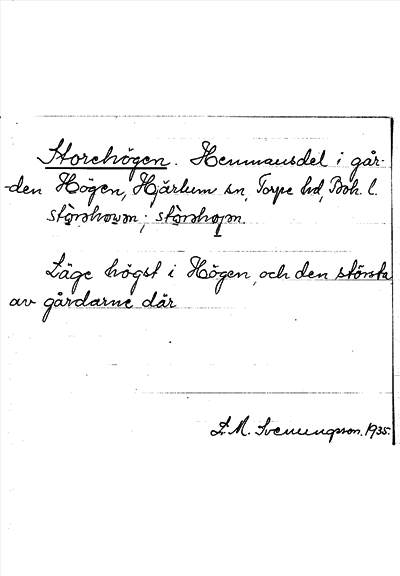 Storehögen. Hemmansdel i går-
den Högen, Hjärtum sn, Torpe hd, Boh. l.
Läge högst i Högen, och den största
av gårdarne där
F. M. Svenungsson. 1935.